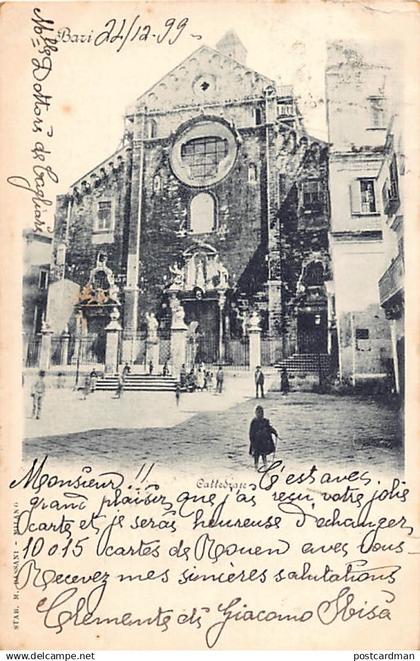 Bari 22/12.99
Cattedrale
Monsieur!! C'est avec
grand plaisir, que j'ai reçu votre jolie
carte et je serais heureuse d'echanger
10 o 15 cartes de Rouen avec vous
Recevez mes sinières salutations
Clemente di Giacomo
STAB. M. - MILANO
postcardman
www.postcardman.com